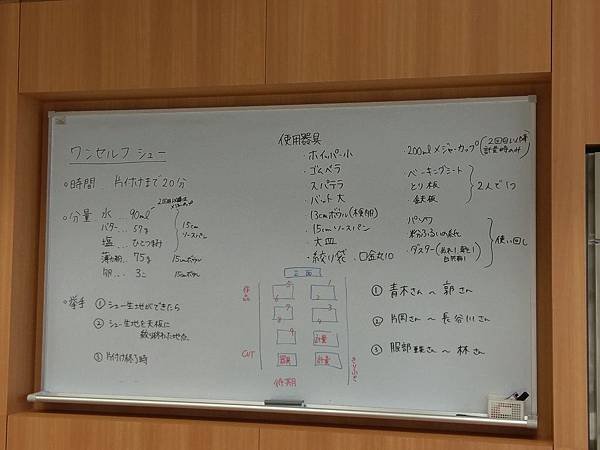 ワンセルフ シュー
○時間 片付けまで20分
○分量 水 … 90ml
バター … 57g
塩 … ひとつまみ
15cm ソースパン
薄力粉 … 75g 15cmボウル
卵 … 3コ 15cmボウル
○挙手 ①シュー生地ができたら
②シュー生地を天板に
絞り終わった時点
③片付け終了時
使用器具
・ホイッパー小
・ゴムベラ
・スパテラ
・バット 大
・13cmボウル(検卵用)
・15cmソースパン
・大皿
・絞り袋・口金丸10
・200mlメジャーカップ(2回目以降 計量時のみ)
ベーキングシート
・とり板
・鉄板
2人で1つ
粉ふるいの紙
・ダスター
使い回し
正面
5 1
7 2
6 3
8 4
9 計量
器具 計量
CUT
①青木さん〜郭さん
②片岡さん〜長谷川さん
③服部さん〜林さん